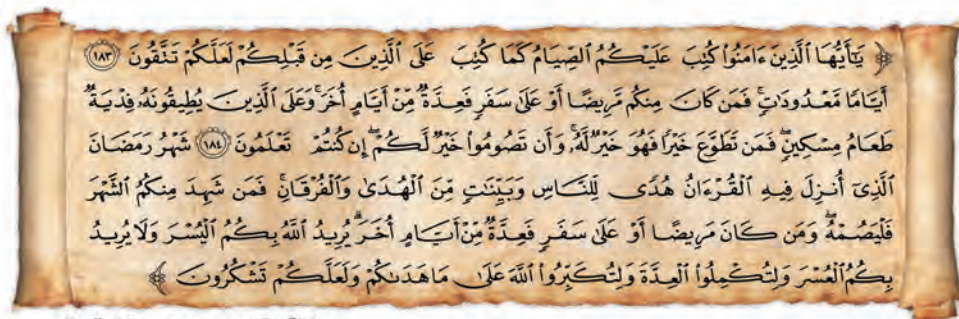 ﴿ يَٰٓأَيُّهَا ٱلَّذِينَ ءَامَنُواْ كُتِبَ عَلَيۡكُمُ ٱلصِّيَامُ كَمَا كُتِبَ عَلَى ٱلَّذِينَ مِن قَبۡلِكُمۡ لَعَلَّكُمۡ تَتَّقُونَ ١٨٣
أَيَّامٗا مَّعۡدُودَٰتٖۚ فَمَن كَانَ مِنكُم مَّرِيضًا أَوۡ عَلَىٰ سَفَرٖ فَعِدَّةٞ مِّنۡ أَيَّامٍ أُخَرَۚ وَعَلَى ٱلَّذِينَ يُطِيقُونَهُۥ فِدۡيَةٞ
طَعَامُ مِسۡكِينٖۖ فَمَن تَطَوَّعَ خَيۡرٗا فَهُوَ خَيۡرٞ لَّهُۥۚ وَأَن تَصُومُواْ خَيۡرٞ لَّكُمۡ إِن كُنتُمۡ تَعۡلَمُونَ ١٨٤ شَهۡرُ رَمَضَانَ
ٱلَّذِيٓ أُنزِلَ فِيهِ ٱلۡقُرۡءَانُ هُدٗى لِّلنَّاسِ وَبَيِّنَٰتٖ مِّنَ ٱلۡهُدَىٰ وَٱلۡفُرۡقَانِۚ فَمَن شَهِدَ مِنكُمُ ٱلشَّهۡرَ
فَلۡيَصُمۡهُۖ وَمَن كَانَ مَرِيضًا أَوۡ عَلَىٰ سَفَرٖ فَعِدَّةٞ مِّنۡ أَيَّامٍ أُخَرَۗ يُرِيدُ ٱللَّهُ بِكُمُ ٱلۡيُسۡرَ وَلَا يُرِيدُ
بِكُمُ ٱلۡعُسۡرَ وَلِتُكۡمِلُواْ ٱلۡعِدَّةَ وَلِتُكَبِّرُواْ ٱللَّهَ عَلَىٰ مَا هَدَىٰكُمۡ وَلَعَلَّكُمۡ تَشۡكُرُونَ ﴾